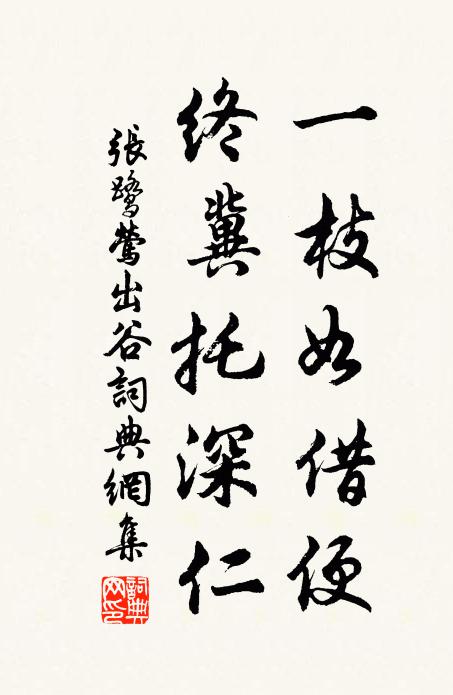 一枝如借便
終冀托深仁
張鷺鶯出谷詞典網集
詞典網印